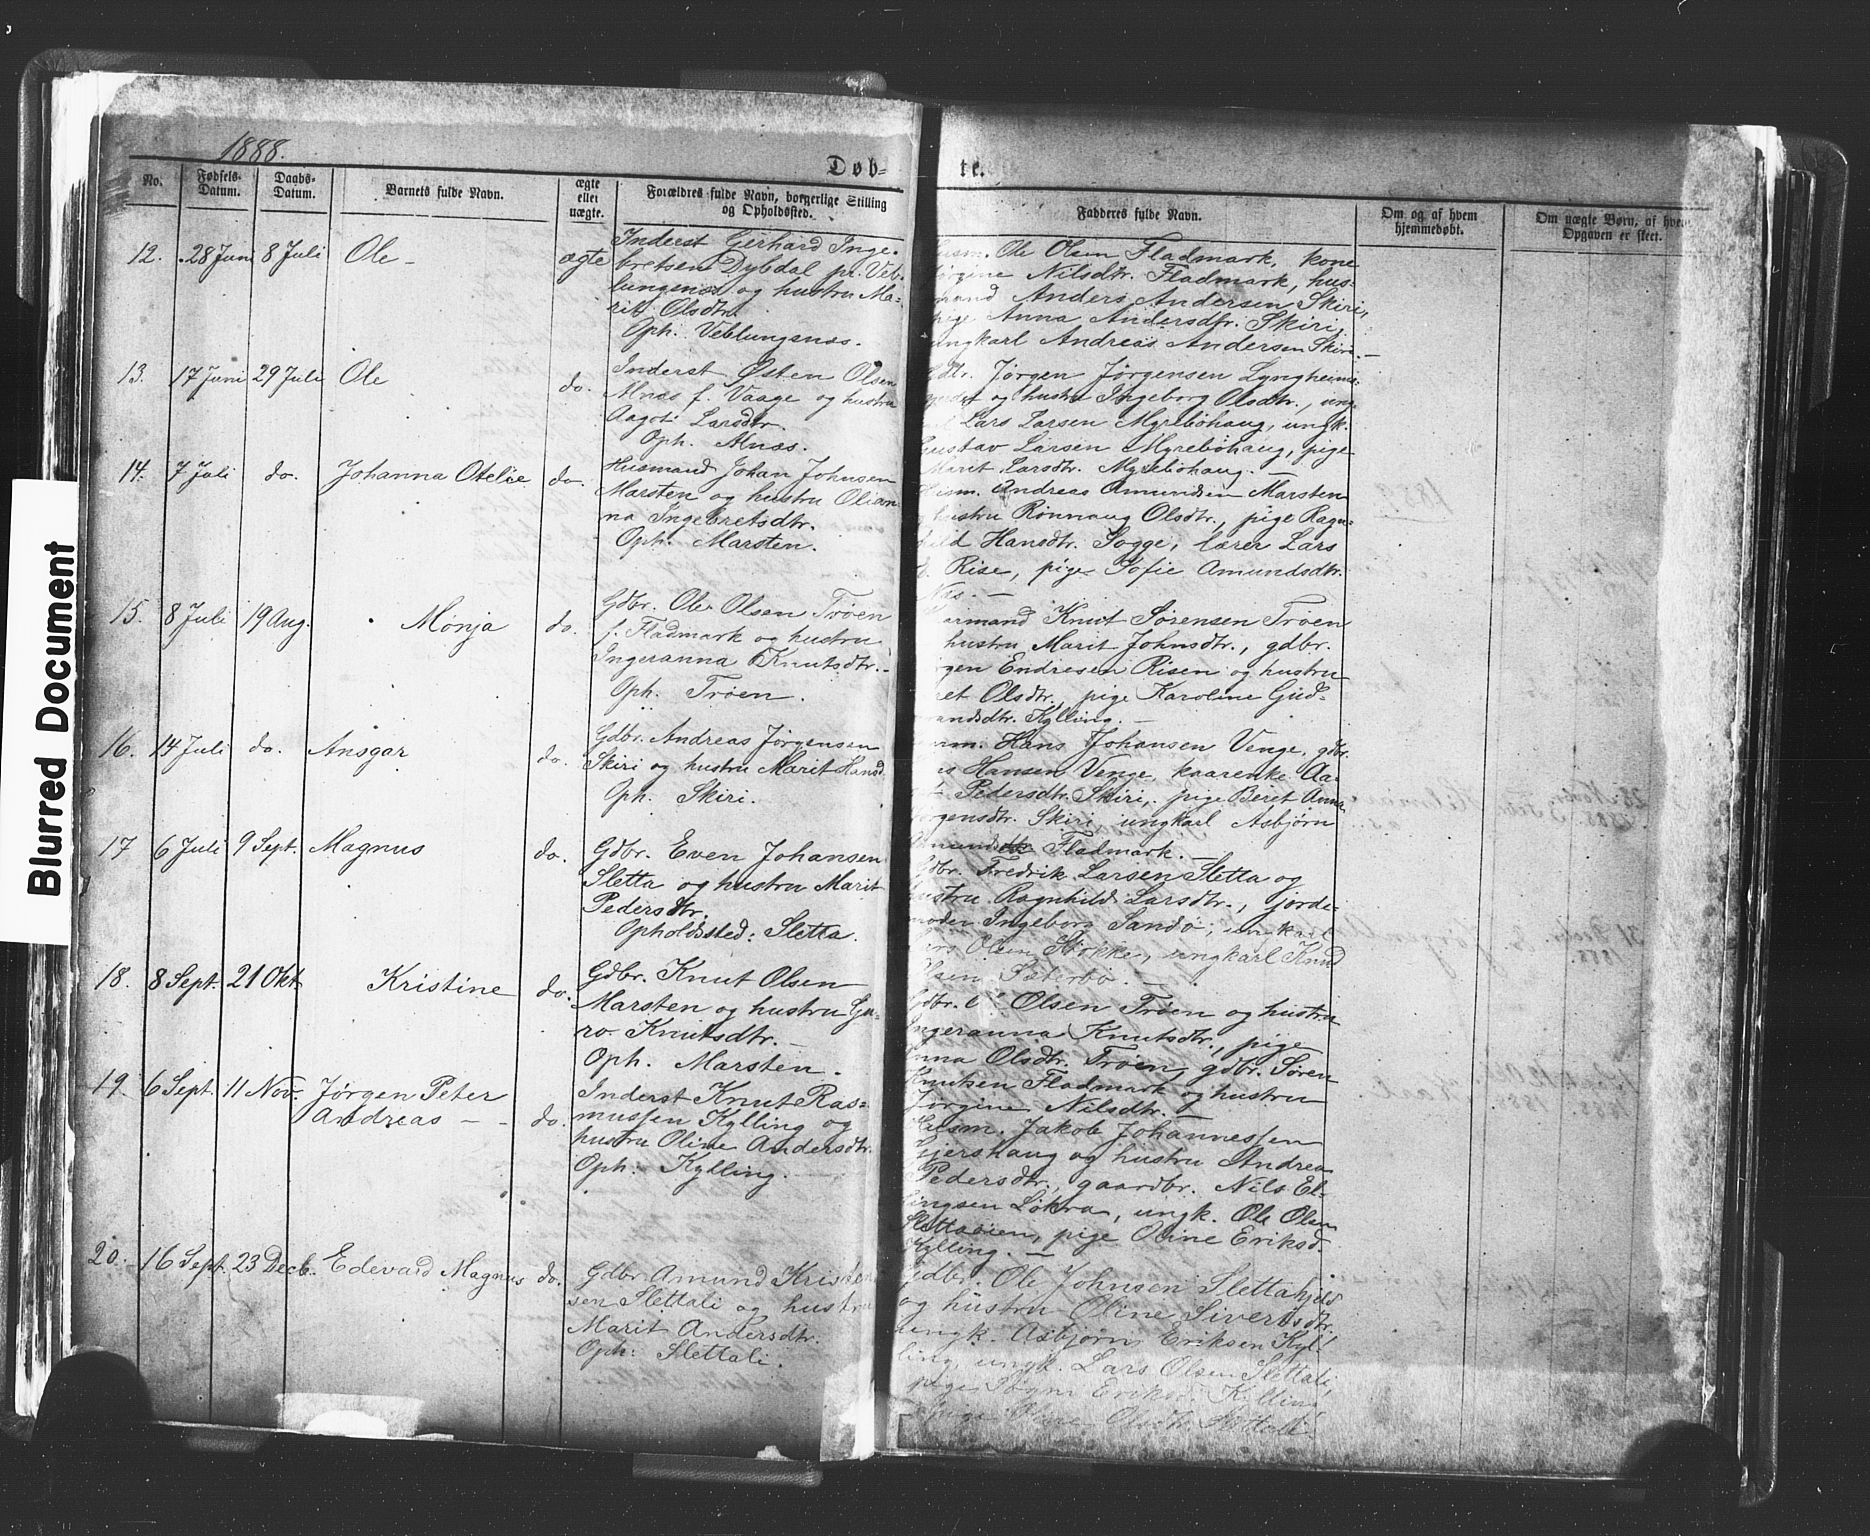 Blurred Document
1888.
Døb-
te.
No.
Fødsels-
Datum.
Daabs-
Datum.
Barnets fulde Navn.
ægte
eller
uægte.
Forældres fulde Navn, borgerlige Stilling
og Opholdssted.
Fadderes fulde Navn.
Om og af hvem
hjemmedøbt.
Om uægte Børn, af hvem
Opgaven er skeet.
12. 28 Juni 8 Juli Ole - ægte
Inderst Gerhard Inge-
bretsen Dybdal pr. Veb-
lungsnæs og hustru Ma-
rit Olsdtr.
Oph. Veblungsnæs.
Husm. Ole Olsen Fladmark, kone
Jørgine Nilsdtr. Fladmark, hus-
mand Anders Andersen Skiri,
pige Anna Andersdtr. Skiri,
ungkarl Andreas Andersen Skiri. -
13. 17 Juni 29 Juli Ole do.
Inderst Østen Olsen
Alnæs f. Vaage og hustru
Aagot Larsdtr.
Oph. Alnæs.
Gdbr. Jørgen Jørgensen Lyngheims-
og hustru Ingeborg Olsdtr., ung-
Lars Larsen Myrebøhaug, ungk.
Gustav Larsen Myrebøhaug, pige
Marit Larsdtr. Myrebøhaug. -
14. 7 Juli do. Johanna Otelie do.
Husmand Johan Johnsen
Marsten og hustru Olian-
na Ingebretsdtr.
Oph. Marsten.
Husm. Andreas Amundsen Marsten
hustru Rønnaug Olsdtr., pige Ragn-
hild Hansdtr. Sogge, lærer Lars
Rise, pige Sofie Amundsdtr.
Næs. -
15. 8 Juli 19 Aug. Monja do.
Gdbr. Ole Olsen Trøen
f. Fladmark og hustru
Ingeranna Knutsdtr. -
Oph. Trøen.
Knut Sørensen Trøen
hustru Marit Johnsdtr., gdbr.
Jørgen Endresen Risen og hustru
Beret Olsdtr., pige Karoline Gud-
mandsdtr. Kylling. -
16. 14 Juli do. Ansgar do.
Gdbr. Andreas Jørgensen
Skiri og hustru Marit Hansd.
Oph. Skiri.
Hans Johansen Venge, gdbr.
Hansen Venge, kaarenke Aa-
Pedersdtr. Skiri, pige Beret Anna
Jørgensdtr. Skiri ungkarl Asbjørn
Fladmark. -
17 6 Juli 9 Sept. Magnus do.
Gdbr. Even Johansen
Sletta og hustru Marit
Pedersdtr.
Opholdssted: Sletta.
Gdbr. Fredrik Larsen Sletta og
hustru Ragnhild Larsdtr., jorde-
moder Ingeborg Sandø, ungkarl
Olsen Stokke, ungkarl Knud
Olsen Sæterbø. -
18. 8 Sept. 21 Okt. Kristine do.
Gdbr. Knut Olsen
Marsten og hustru Gu-
ro Knutsdtr. -
Oph. Marsten.
Gdbr. Ole Olsen Trøen og hustru
Ingeranna Knutsdtr., pige
Anna Olsdtr. Trøen, gdbr. Søren
Knutsen Fladmark og hustru
Jørgine Nilsdtr. -
19. 6 Sept. 11 Nov. Jørgen Peter
Andreas - - do.
Inderst Knut Ras-
mussen Kylling og
hustru Oline Andersdtr.
Oph. Kylling. -
Husm. Jakob Johannessen
og hustru Andrea
Pedersdtr., gaardbr. Nils El-
lingsen Løkra, ungk. Ole Olsen
Slettaøien, pige Oline Eriksd.
Kylling. -
20. 16 Sept. 23 Decb. Edevard Magnus do.
Gdbr. Amund Kristen-
sen Slettali og hustru
Marit Andersdtr.
Oph: Slettali.
Gdbr. Ole Johnsen Slettahjeld
og hustru Oline Sivertsdtr.
ungk. Asbjørn Eriksen Kyl-
ling, ungk. Lars Olsen Slettali,
pige Eriksd. Kylling
pige Oline Olsdtr. Slettali